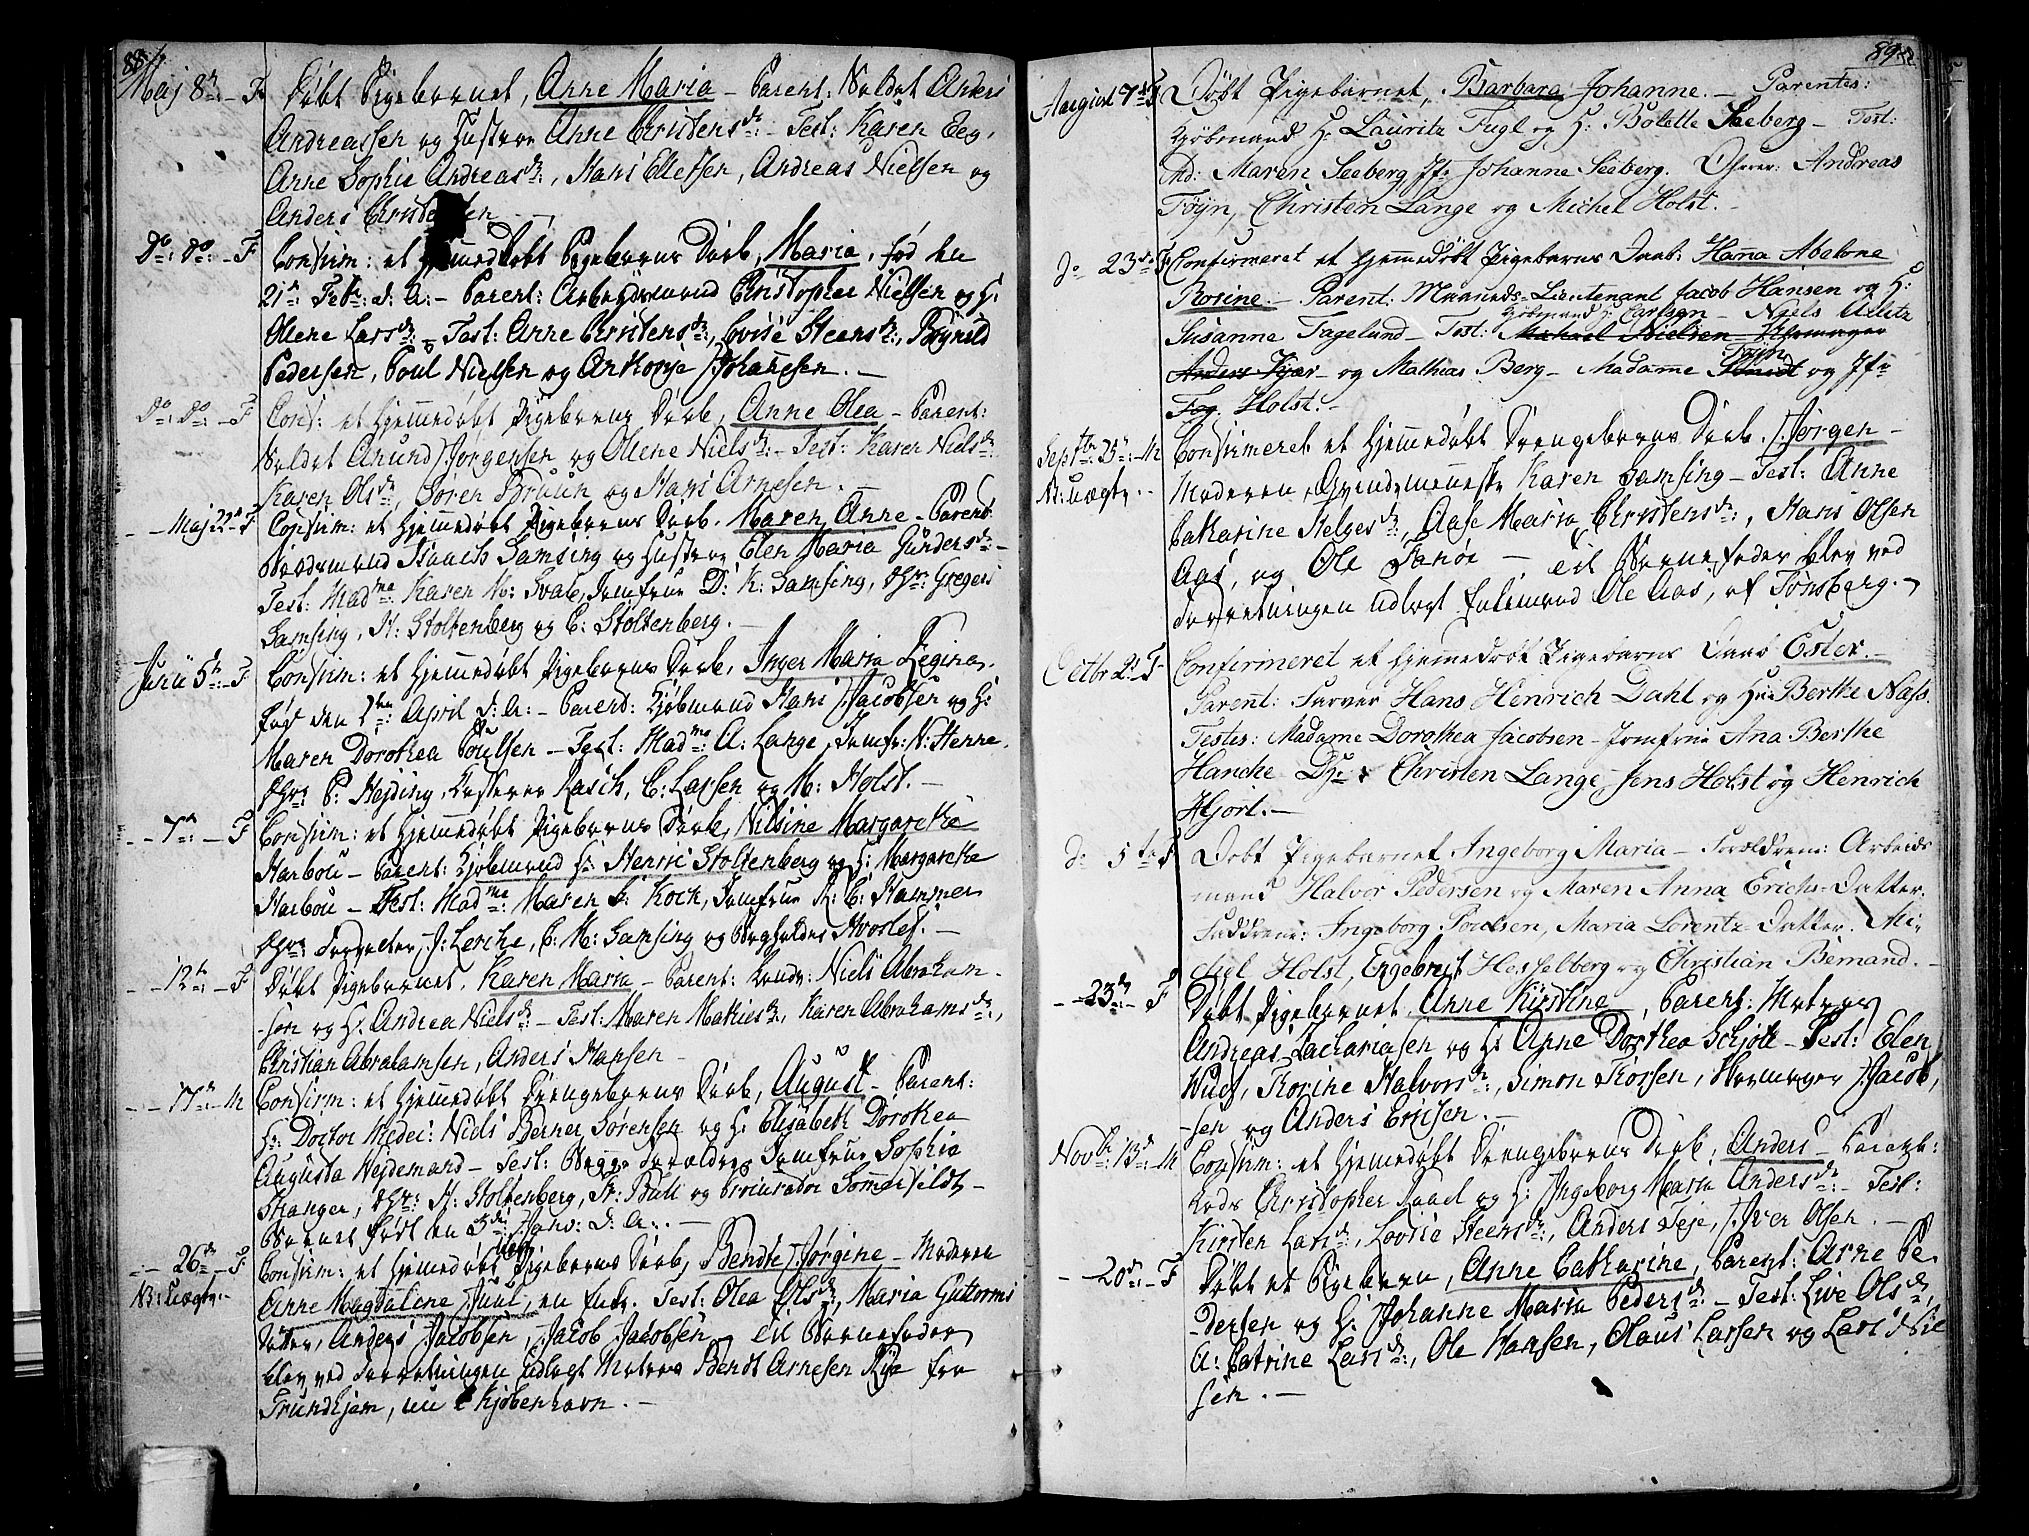 88
Maj 8de – F Döbt Pigebarnet, Anne Maria – Parent: Soldat Anders
Andreassen og Hustrue Anne Christensdr: – Test: Karen Eeg,
Anne Sophie Andreasdr:, Hans Ellefsen, Andreas Nielsen og
Anders Christensen –
Do: Do: – F Confirm: et hjemmedöbt Pigebarns Daab, Maria, föd den
21de Febr: d: A: – Parent: Arbeidsmand Christopher Nielsen og H:
Olene Larsdr: – Test: Anne Christensdr:, Lovise Steensdr:, Bognild
Pedersen, Poul Nielsen og Antonje Johannesen. –
Do: Do: – F Conf: et hjemmedöbt Pigebarns Daab, Anne Olea – Parent:
Soldat Anund Jörgensen og Ollene Nielsdr: – Test: Karen Nielsdr:
Karen Olsdr, Sören Bruun og Hans Arnesen. –
– – Maj 22de – F Confirm: et hjemmedöbt Pigebarns Daab, Maren Anne – Parent:
Isaach Samsing og Hustrue Elen Maria Gundersdr: –
Test: Madme: Karen M: Svale, Jomfrue D: K: Samsing, Hrr: Gregers
Samsing, H: Stoltenberg og C: Stoltenberg. –
Junii 5te: – F Confirm: et hjemmedöbt Pigebarns Daab, Inger Maria Regina,
föd den 2den: April d: A: – Parent: Kjöbmand Hans Jacobsen og H:
Maren Dorothea Poulsen – Test: Madme: A: Lange, Jomfr: N: Henne,
Hrr: P: Hejding, Rasch, C: Larsen og M: Holst. –
– – 7de: – F Confirm: et hjemmedöbt Pigebarns Daab, Nilsine Margarethe
Harbou – Parent: Kjöbmand Hr: Henric Stoltenberg og H: Margarethe
Harbou – Test: Madme: Maren S: Kock, Jomfrue K: C: Hammer
Hrr: Forvalter J: Lerche, C: M: Samsing og Hvoslef. –
– – 12te: – F Döbt Pigebarnet, Karen Maria – Parent: Niels Abraham-
-sen og H: Andrea Nielsdr: – Test: Maren Mathiesdr:, Karen Abrahamsdr:,
Christian Abrahamsen, Anders Hansen –
– – 17de: – M Confirm: et hjemmedöbt Drengebarns Daab, August – Parent:
Hr: Doctor Medei: Niels Berner Sörensen og H: Elisabeth Dorothea
Augusta Hejdemand – Test: Begge Forældre, Jomfrue Sophie
Stranger, Hrr: H: Stoltenberg, Fr: Bull og Procurator Sommerfeldt –
Barnet födt den 3de: Janv: d: A: . –
– – 26de – F Confirm: et hjemmedöbt Pigebarns Daab, Bendte Jörgine – Moderen
NB: Uægte. Anne Magdalene Juul, en Enke. Test: Olea Olsdr, Maria Guttorms
Datter, Anders Jacobsen, Jacob Jacobsen – Til Barnefader
blev ved Forretningen udlagt Matros Bendt Arnesen Rye fra
Trundhjem, nu i Kjöbenhavn. –
89
August 7de F Döbt Pigebarnet, Barbara Johanne. – Parentes:
Kjöbmand Hr Lauritz Fugl og H: Bolette Seeberg – Test:
Md: Maren Seeberg Jfr Johanne Seeberg. Andreas
Föyn, Christen Lange og Michel Holst. –
do 23de F Confirmeret et hjemmedöbt Pigebarns Daab: Hanna Abelone
Rosine. – Parent: Maaneds-Lieutenant Jacob Hansen og H:
Kjöbmand Hr Carlsen – Niels
Susanne Fagelund – Test: Michael Nielsen
Anders Kjær – og Mathias Berg – Madame Föyn Schmidt og Jfr
Holst. –
Septbr: 25de – M Confirmeret et hjemmedöbt Drengebarns Daab, Jörgen –
NB: uægte. – Moderen, Karen Samsing – Test: Anne
Catharine Helgesdr:, Aase Maria Christensdr:, Hans Olsen
Aas, og Ole Fanöe – Til Barnefader blev ved
Forretningen udlagt Ole Aas, af Tönsberg. –
Octbr 2de F – Confirmeret et hjemmedöbt Pigebarns Daab Ester. –
Parent: Farver Hans Henrich Dahl og Hue Berthe Næss.
Testes: Madame Dorothea Jacobsen – Jomfrue Ana Berthe
Hancke Christen Lange – Jens Holst og Henrich
Hjort. –
do 5te F Döbt Pigebarnet Ingeborg Maria – Forældrene: Arbeids
mand Halvor Pedersen og Maren Anna Erichs-Datter.
Fadderne: Ingeborg Poulsen, Maria Lorentz-Datter, Mi-
chel Holst, Engebret Hesselberg og Christian Bemand. –
– – 23de: – F Döbt Pigebarnet, Anne Kirstine, Parent: Matros
Andreas Zachariasen og H: Anne Dorthea Schjött – Test: Elen
Wulf, Thorine Halvorsdr:, Simon Thorsen, Jacob-
-sen og Anders Ericsen. –
Novbr: 13de – M Confirm: et hjemmedöbt Drengebarns Daab, Anders – Parent:
Lods Christopher og H: Ingeborg Maria Andersdr: – Test:
Kirsten Larsdr, Lovise Steensdr:, Anders Teje, Iver Olsen. –
– – 20de: – F Döbt et Pigebarn, Anne Catharine, Parent: Arne Pe-
-dersen og H: Johanne Maria Pedersdr: – Test: Live Olsdr,
A: Catrine Larsdr:, Ole Hansen, Olaus Larsen og Lars Niel
sen. –